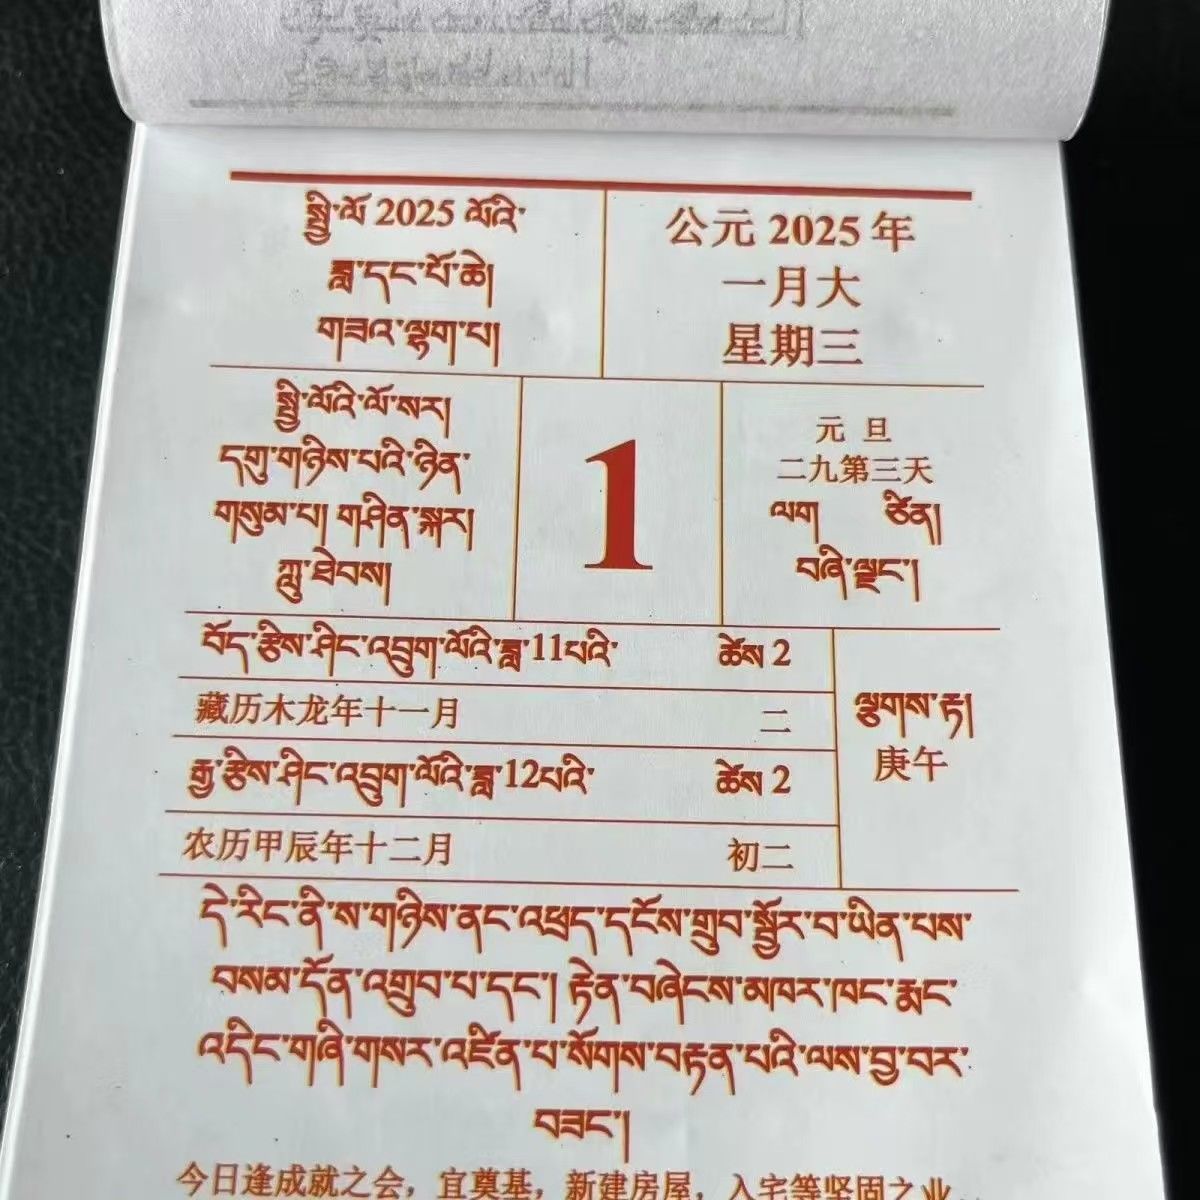 སྤྱི་ལོ 2025 ལོའི་
ཟླ་དང་པོ་ཆེ།
གཟའ་ལྷག་པ།
公元 2025 年
一月大
星期三
སྤྱི་ལོའི་ལོ་སར།
དགུ་གཉིས་པའི་ཉིན་
གསུམ་པ། གཤིན་སྐར།
ཀླུ་ཐེབས།
1
元 旦
二九第三天
ལག ཙིན།
བཞི་ལྗང་།
བོད་རྩིས་ཤིང་འབྲུག་ལོའི་ཟླ་11པའི་ ཚེས 2
藏历木龙年十一月 二
རྒྱ་རྩིས་ཤིང་འབྲུག་ལོའི་ཟླ་12པའི་ ཚེས 2
农历甲辰年十二月 初二
ལྕགས་རྟ།
庚午
དེ་རིང་ནི་ས་གཉིས་ནང་འཕྲད་དངོས་གྲུབ་སྦྱོར་བ་ཡིན་པས་
བསམ་དོན་འགྲུབ་པ་དང་། རྟེན་བཞེངས་མཁར་ཁང་རྨང་
འདིང་གཞི་གསར་འཛིན་པ་སོགས་བརྟན་པའི་ལས་བྱ་བར་
བཟང་།
今日逢成就之会，宜奠基，新建房屋，入宅等坚固之业